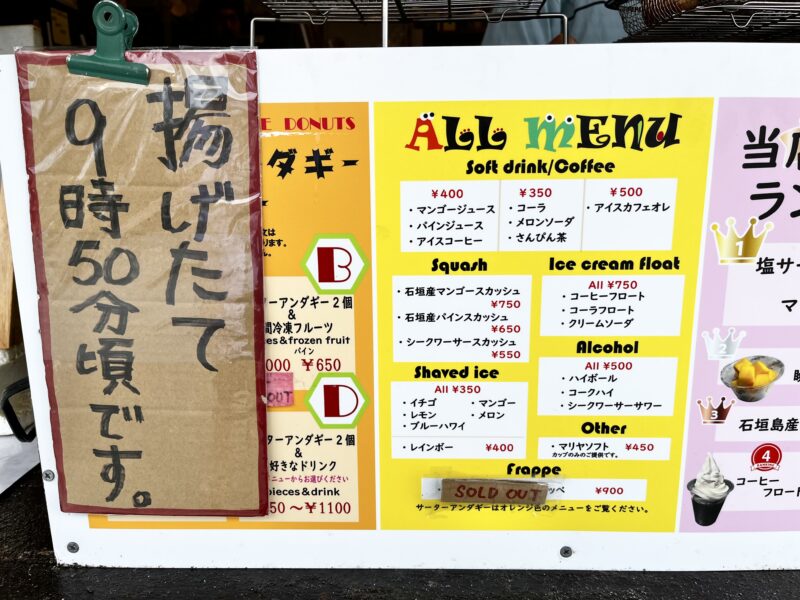 揚げたて
9時50分頃です。
E DONUTS
ダギー
B
ターアンダギー2個
&
間冷凍フルーツ
es&frozen fruit
パイン
000 ¥650
OUT
D
ターアンダギー2個
&
好きなドリンク
ニューからお選びください
pieces&drink
50～¥1100
ALL MENU
Soft drink/Coffee
¥400
・マンゴージュース
・パインジュース
・アイスコーヒー
¥350
・コーラ
・メロンソーダ
・さんぴん茶
¥500
・アイスカフェオレ
Squash
・石垣産マンゴースカッシュ
¥750
・石垣産パインスカッシュ
¥650
・シークワーサースカッシュ
¥550
Ice cream float
All ¥750
・コーヒーフロート
・コーラフロート
・クリームソーダ
Shaved ice
All ¥350
・イチゴ ・マンゴー
・レモン ・メロン
・ブルーハワイ
・レインボー ¥400
Alcohol
All ¥500
・ハイボール
・コークハイ
・シークワーサーサワー
Other
・マリヤソフト ¥450
カップのみのご提供です。
Frappe
SOLD OUT
ッペ ¥900
サーターアンダギーはオレンジ色のメニューをご覧ください。
当店
ラン
1
塩サー
マ
2
3
石垣島産
4
コーヒー
フロート